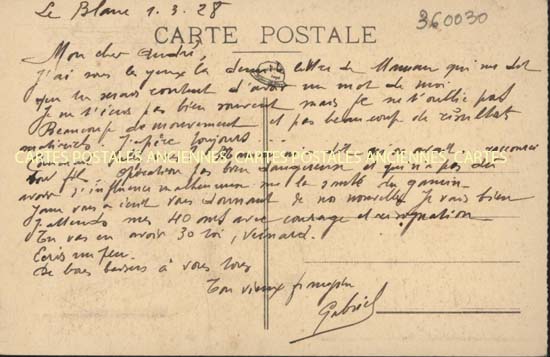 Le Blanc 1.3.28
360030
CARTE POSTALE
Mon cher André,
J'ai sous les yeux la dernière lettre de Maman qui me dit
que tu serais content d'avoir un mot de moi.
Je ne t'écris pas bien souvent mais je ne t'oublie pas
Beaucoup de mouvement et pas beaucoup de résultats
matériels. J'espère toujours
CARTES POSTALES ANCIENNES CARTES POSTALES ANCIENNES CARTES
ton fils. Opération pas bien dangereuse et qui n'a pas dû
avoir d'influence malheureuse sur la santé du gamin.
vous a écrit vous donnant de nos nouvelles. Je vais bien
J'attends mes 40 ans avec courage et résignation
Tu vas en avoir 30 toi, veinard.
Ecris un peu.
De bons baisers à vous tous
Ton vieux frangin
Gabriel